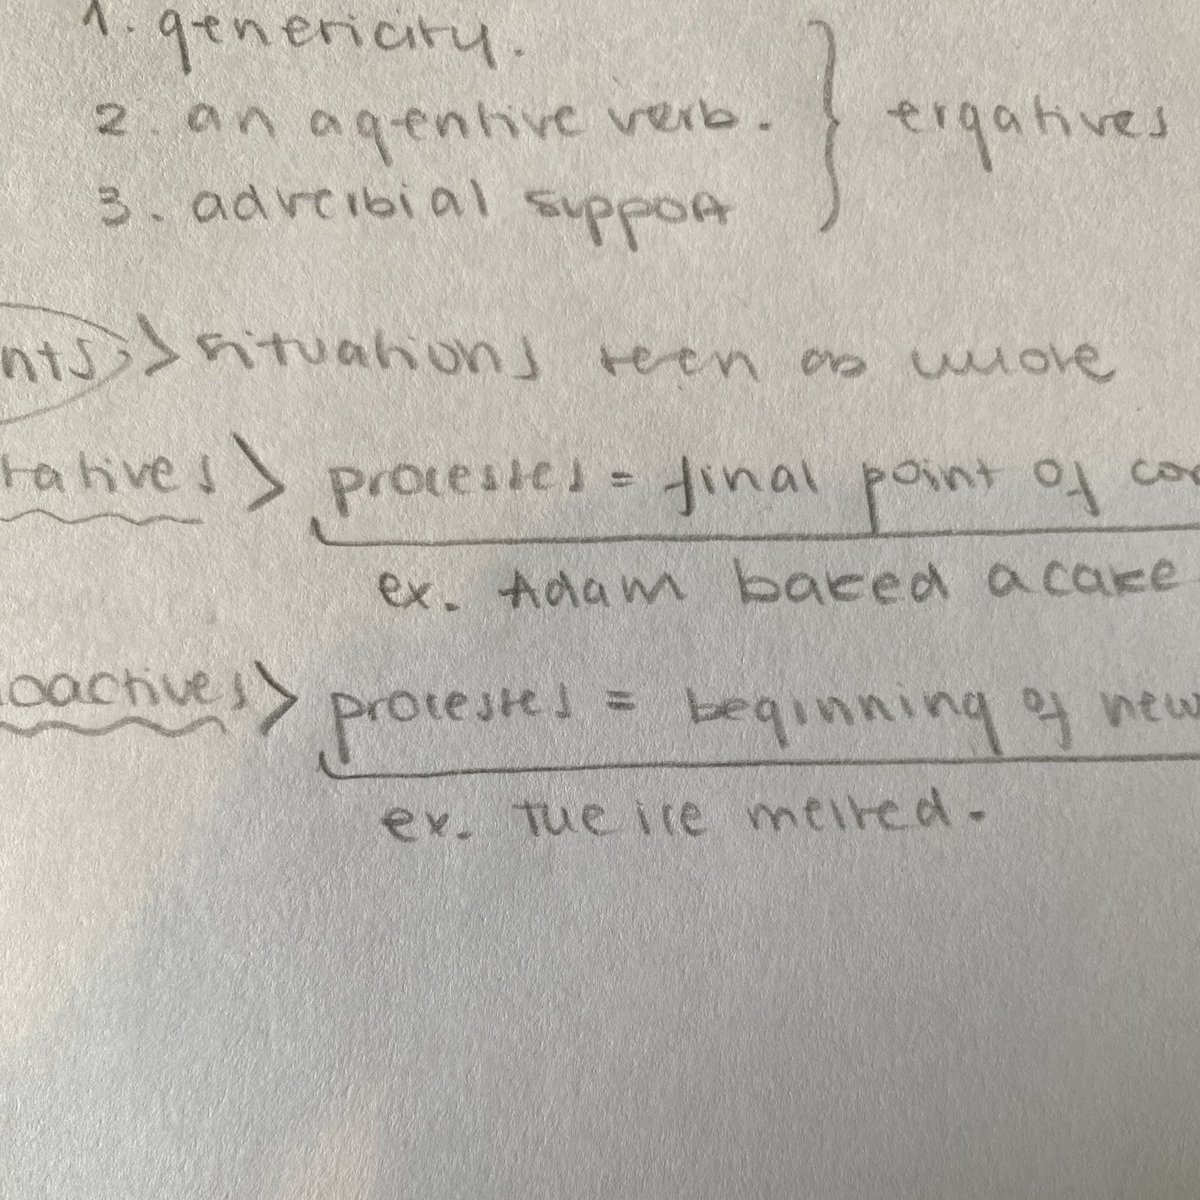 1. genericity.
2. an agentive verb. } ergatives
3. adverbial support
nts > situations seen as whole
ratives > processes = final point of co
ex. Adam baked a cake
oactives > processes = beginning of new
ex. The ice melted.